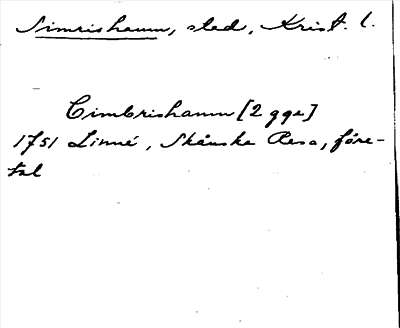 Simrishamn, stad, Krist. l.
Cimbrishamn [2 gge]
1751 Linné, Skånska Resa, före-
tal